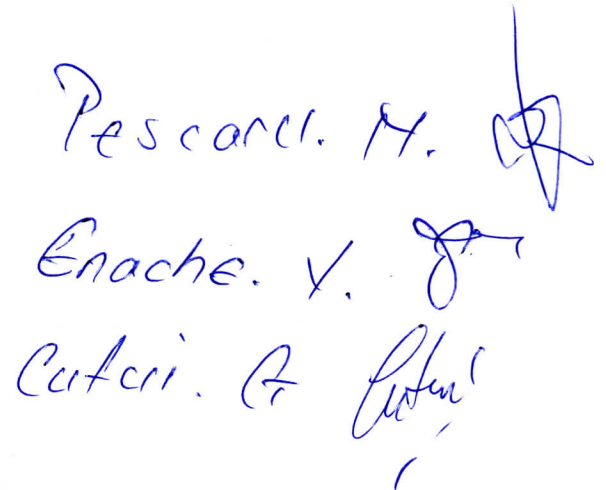 Pescaru. M.
Enache. V.
Cutui. G